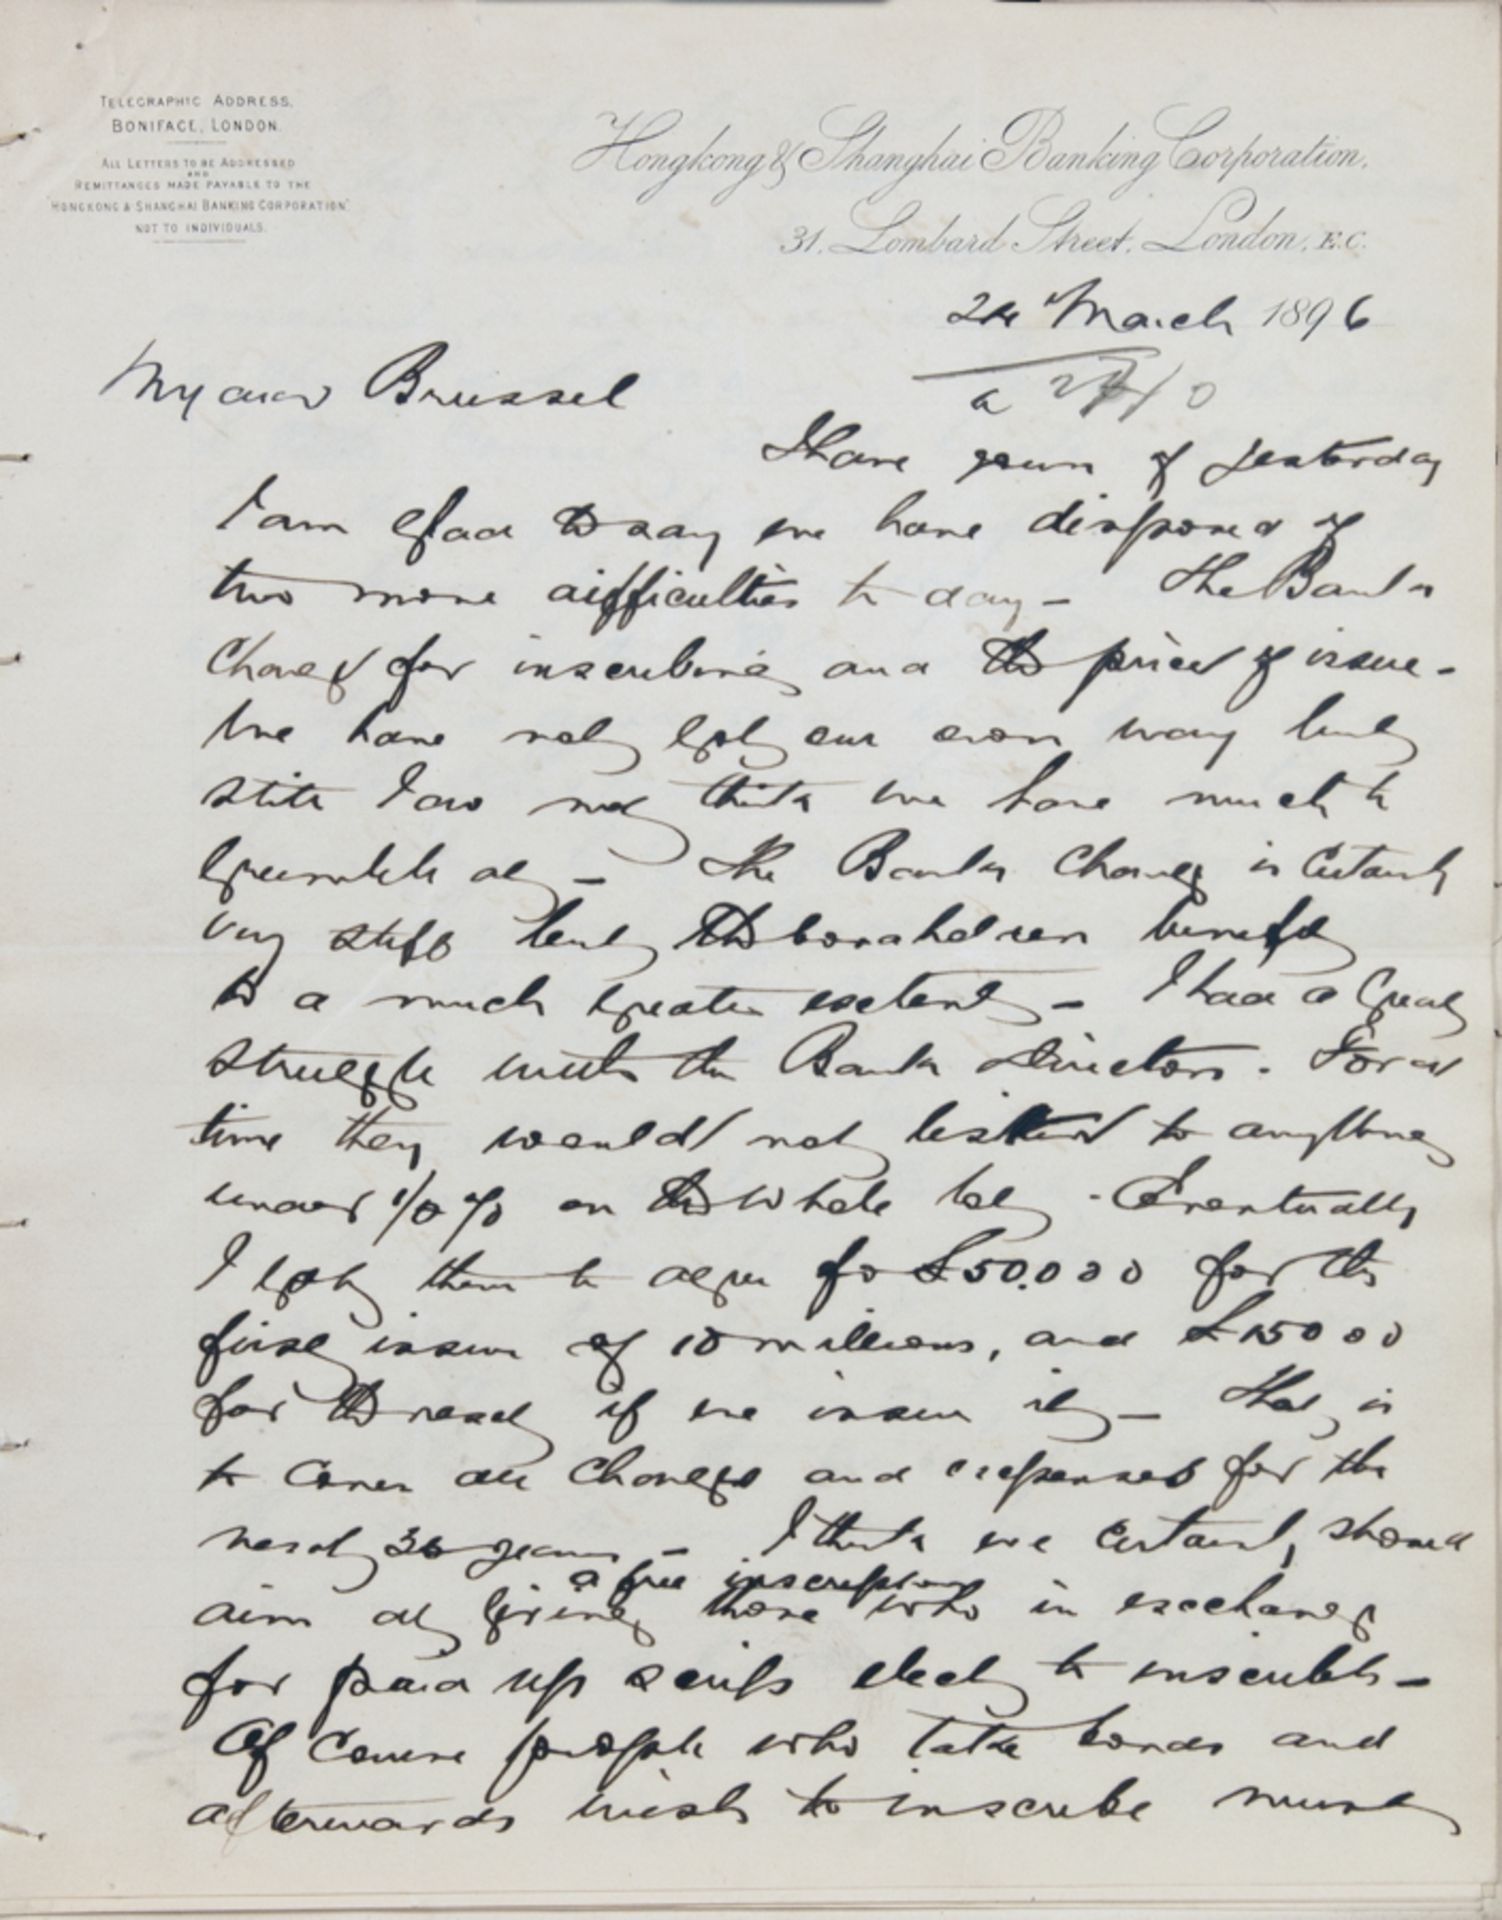 TELEGRAPHIC ADDRESS,
BONIFACE, LONDON.
ALL LETTERS TO BE ADDRESSED
AND
REMITTANCES MADE PAYABLE TO THE
"HONGKONG & SHANGHAI BANKING CORPORATION"
NOT TO INDIVIDUALS.
Hongkong & Shanghai Banking Corporation.
31, Lombard Street, London, E.C.
24 March 1896
My dear Brussel
I have yours of yesterday
I am glad to say we have disposed of
two more difficulties to day - The Banks
Charge for inscribing and the price of issue -
We have not got our own way but
still I do not think we have much to
grumble at - The Banks Charge is Certainly
very stiff but the bondholders benefit
to a much greater extent - I had a Great
struggle with the Bank Directors. For a
time they would not listen to anything
under on the whole lot - Eventually
I got them to agree to £50.000 for the
first issue of 10 millions, and £15000
for the next if we issue it - That is
to Cover all Charges and expenses for the
next 36 years - I think we Certainly should
a free inscription
aim at giving those who in exchange
for paid up scrip elect to inscribe -
Of Course people who take bonds and
afterwards wish to inscribe must